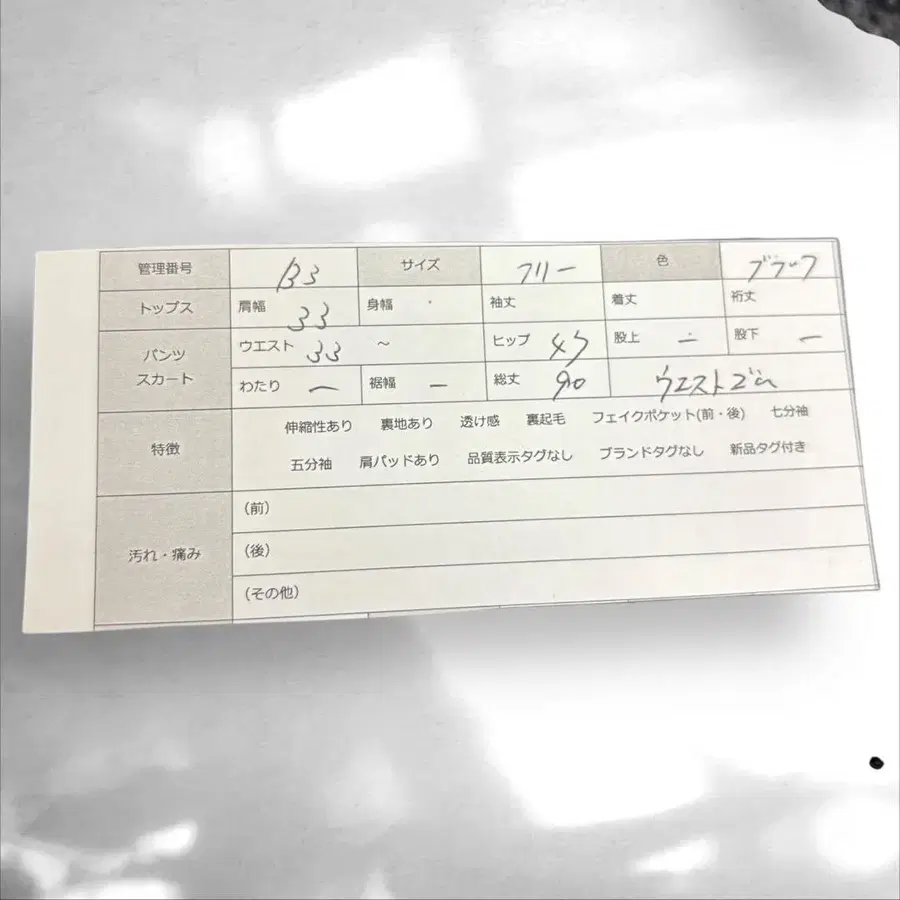 管理番号 B3 サイズ フリー 色 ブラック
トップス 肩幅 33 身幅 袖丈 着丈 裄丈
パンツ スカート ウエスト 33 ～ ヒップ 45 股上 ー 股下 ー
わたり ー 裾幅 ー 総丈 90 ウエストゴム
特徴 伸縮性あり 裏地あり 透け感 裏起毛 フェイクポケット(前・後) 七分袖
五分袖 肩パッドあり 品質表示タグなし ブランドタグなし 新品タグ付き
汚れ・痛み (前)
(後)
(その他)